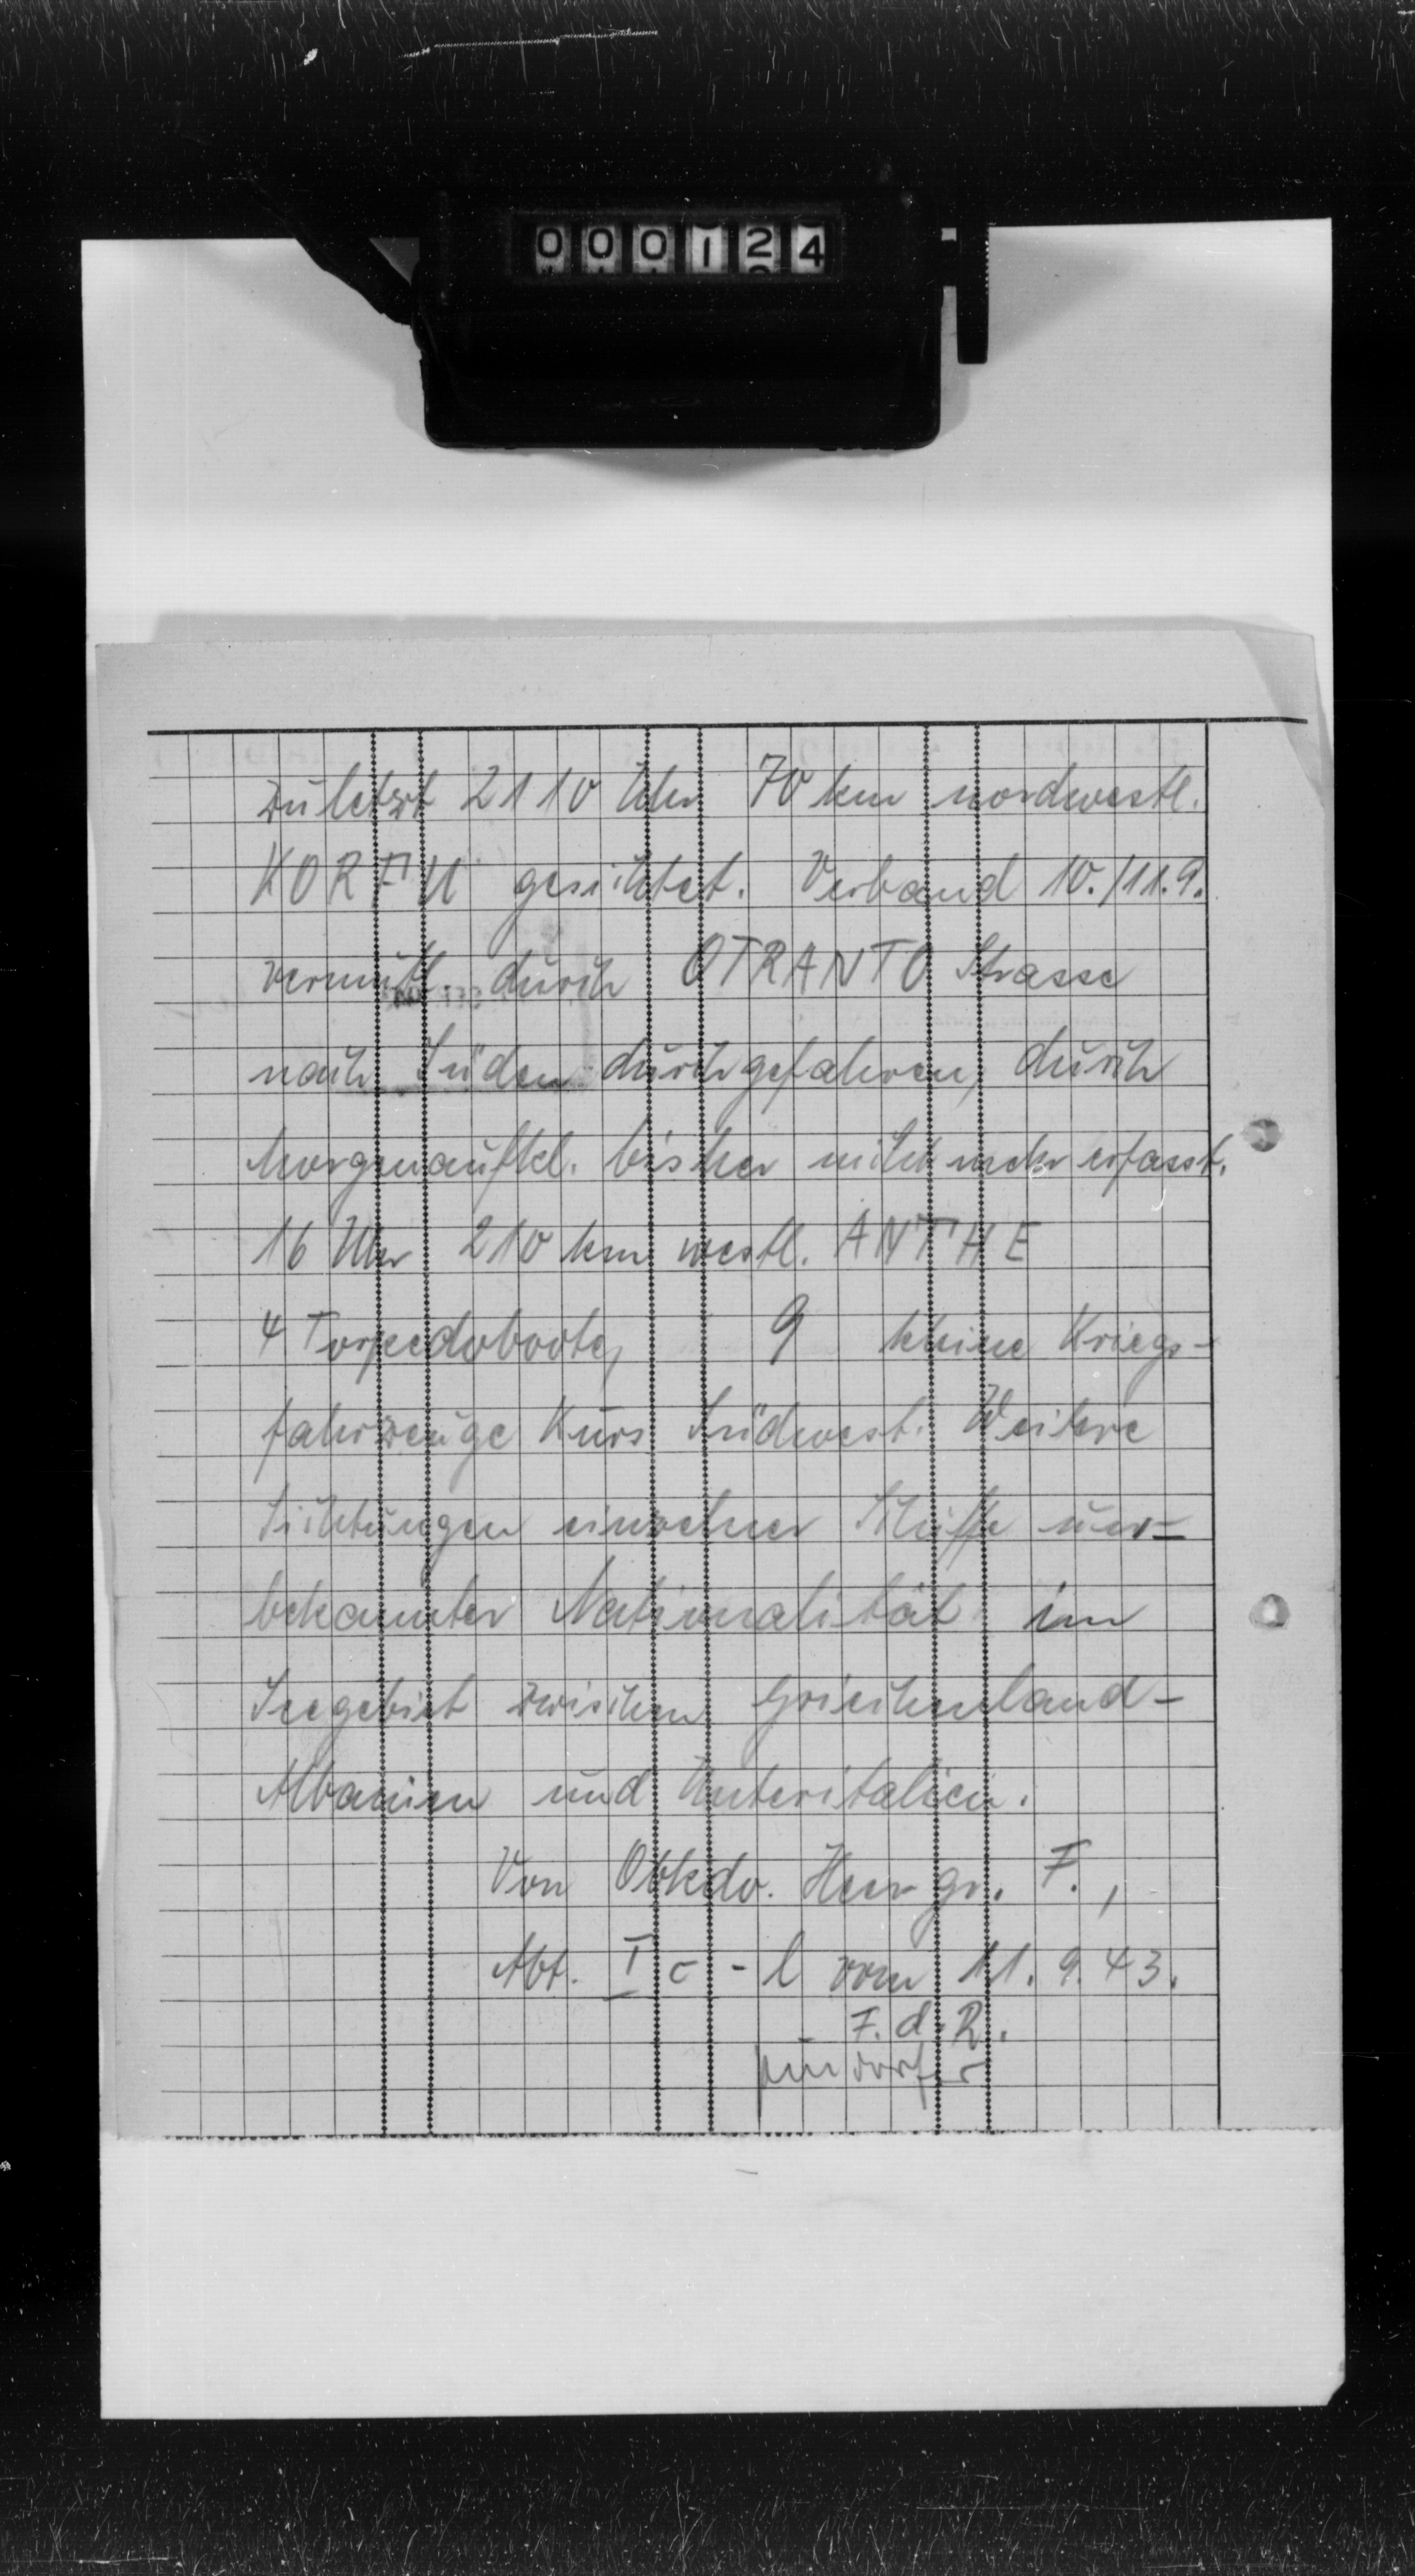 000124
zuletzt 2110 Uhr 70 km nordwestl.
KORFU gesichtet. Verband 10./11.9.
vermutl. durch OTRANTO Strasse
nach Süden durchgefahren, durch
Morgenaufkl. bisher nicht mehr erfasst.
16 Uhr 210 km westl. ANTHE
4 Torpedoboote, 9 kleine Kriegs-
fahrzeuge Kurs Südwest. Weitere
Sichtungen einzelner Schiffe un-
bekannter Nationalität im
Seegebiet zwischen Griechenland-
Albanien und Unteritalien.
Von Obkdo. Heergr. F.,
Abt. I c - l vom 11.9.43.
F.d.R.